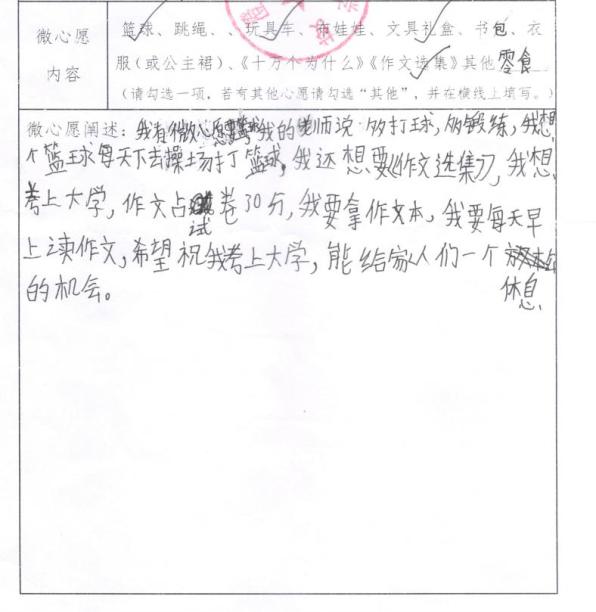 微心愿
内容
篮球、跳绳、、玩具车、布娃娃、文具礼盒、书包、衣
服(或公主裙)、《十万个为什么》《作文选集》其他零食
(请勾选一项,若有其他心愿请勾选“其他”,并在横线上填写。)
微心愿阐述:我有微心愿我的老师说多打球,多锻练,我想
个篮球每天下去操场打篮球,我还想要《作文选集》,我想
考上大学,作文占试卷30分,我要拿作文本,我要每天早
上读作文,希望祝我考上大学,能给家人们一个休息
的机会。